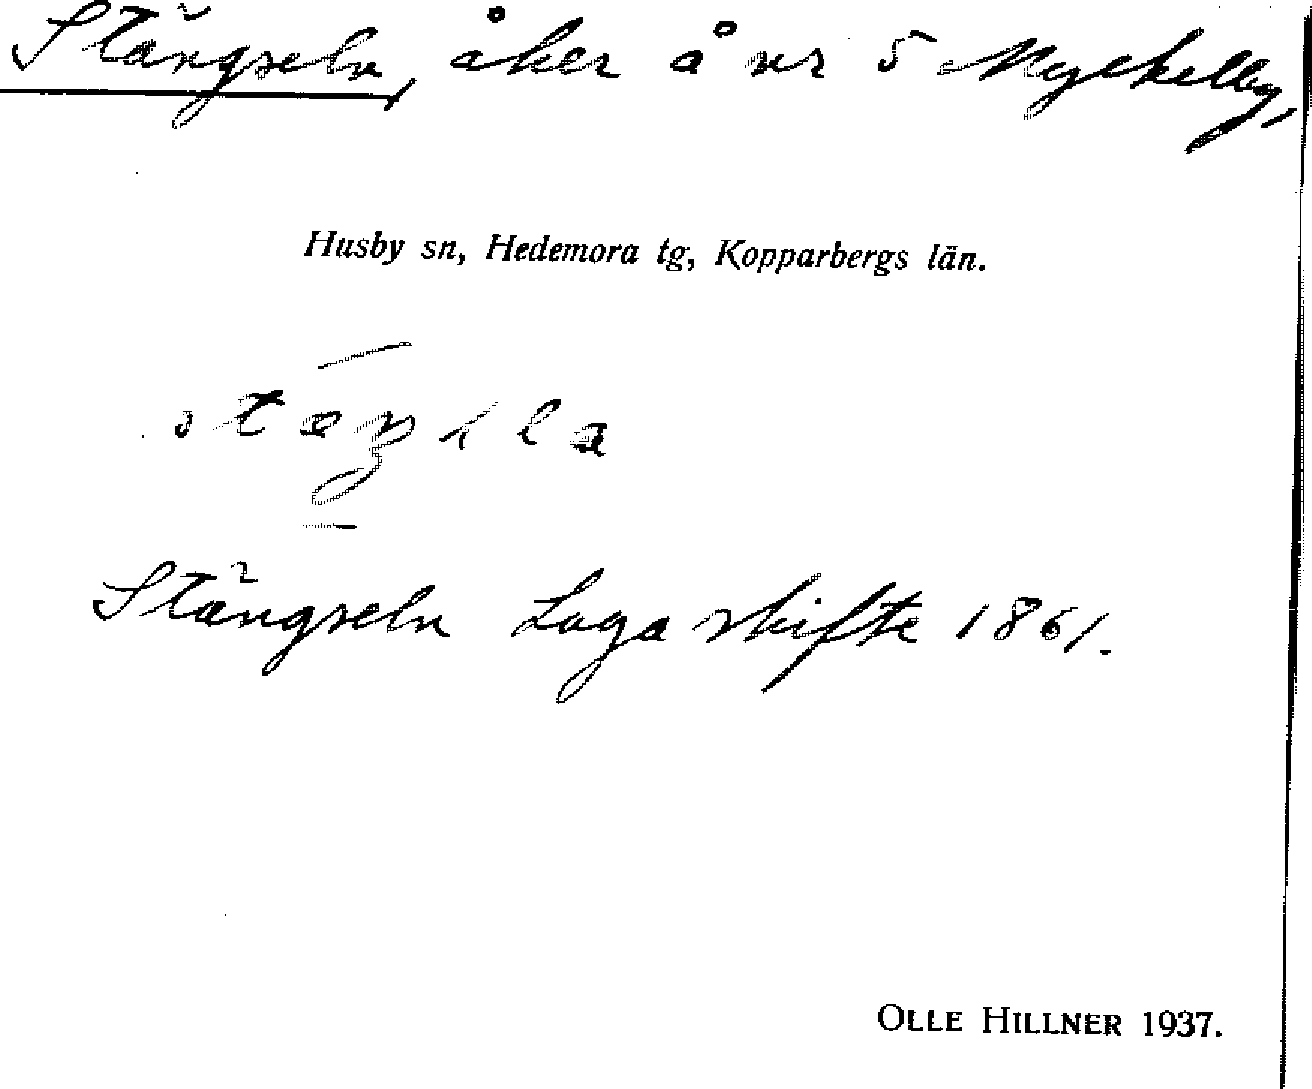 Stängseln, åker å nr 5 Myckelby,
Husby sn, Hedemora tg, Kopparbergs län.
Stängseln Laga skifte 1861.
OLLE HILLNER 1937.